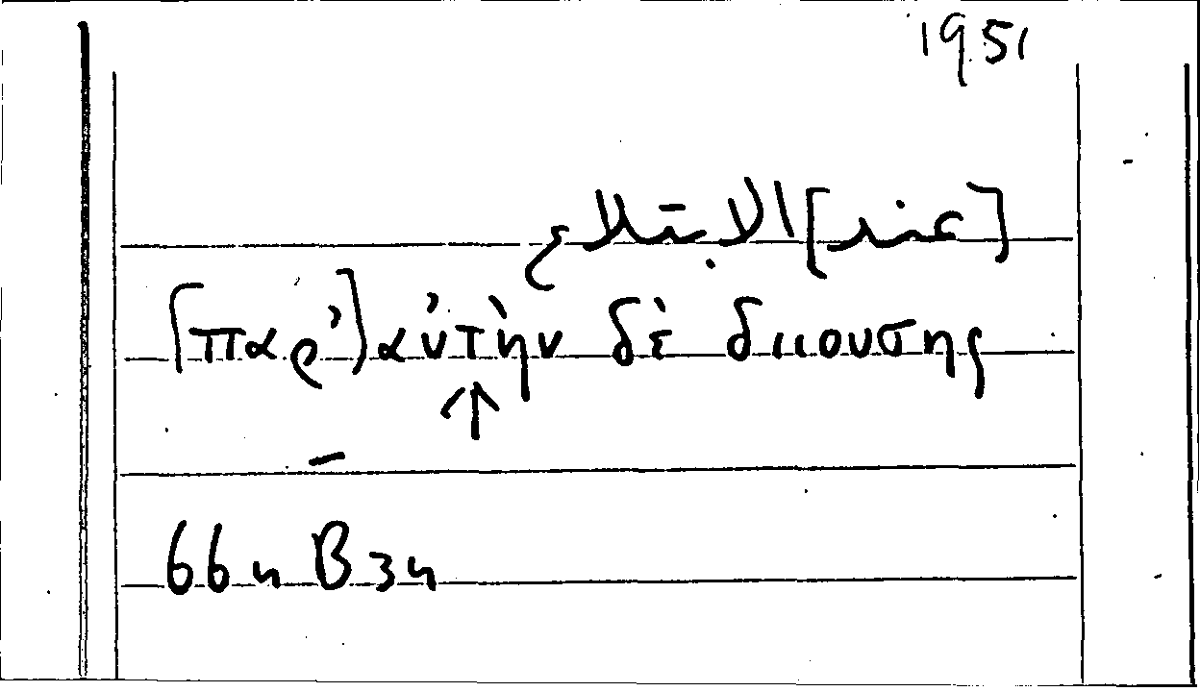 1951
[عند] الابتلاع
[παρ'] αὐτὴν δὲ διιουσης
↑
66 4 B 34